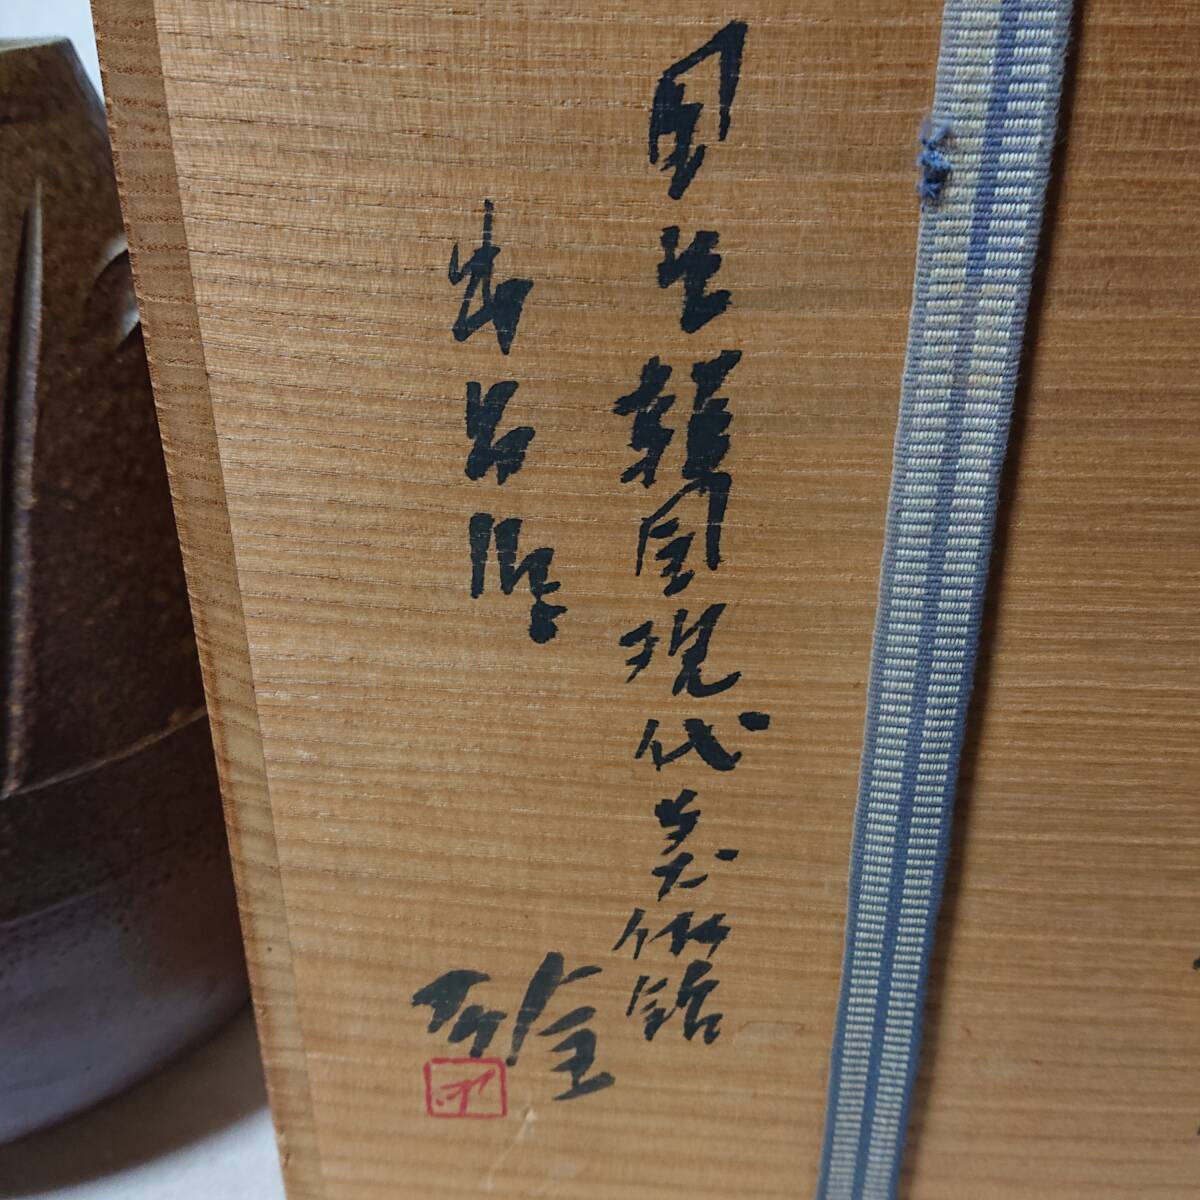 国立韓国現代美術館
出品作